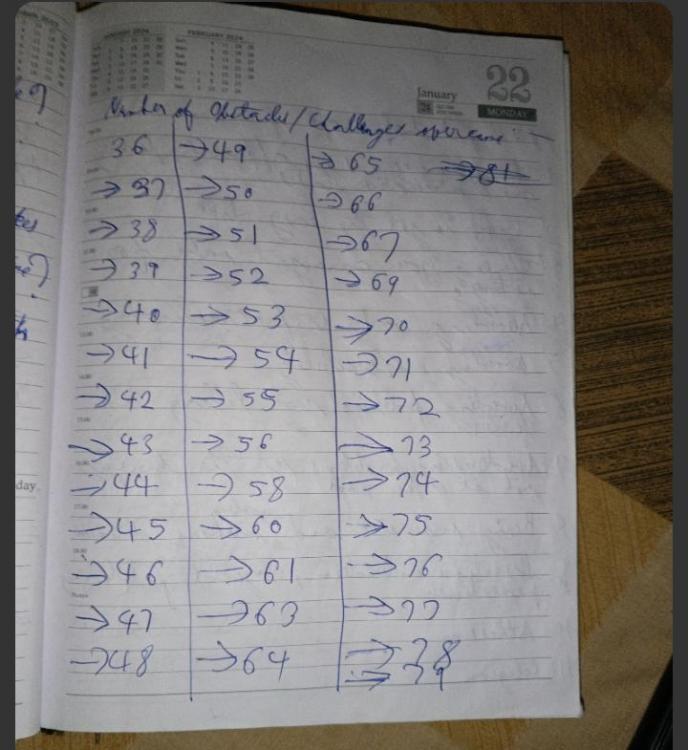 FEBRUARY 2024
January 22
MONDAY
Number of Obstacles/Challenges overcame:-
36 →49 →65 →81
→37 →50 →66
→38 →51 →67
→39 →52 →69
→40 →53 →70
→41 →54 →71
→42 →55 →72
→43 →56 →73
→44 →58 →74
→45 →60 →75
→46 →61 →76
→47 →63 →77
→48 →64 →78
→79
day.